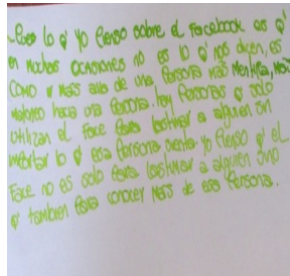 - Pues lo q' yo Pienso sobre el Facebook es q'
en muchas ocasiones no es lo q' nos dicen, es
como ir mas alla de una Persona mas mentira, mas
hacia una Persona. hay Personas q' solo
utilizan el Face Para lastimar a alguien sin
lo q' esa Persona sienta yo Pienso q' el
Face no es solo Para lastimar a alguien sino
q' tambien Para conocer mas de esa Persona.